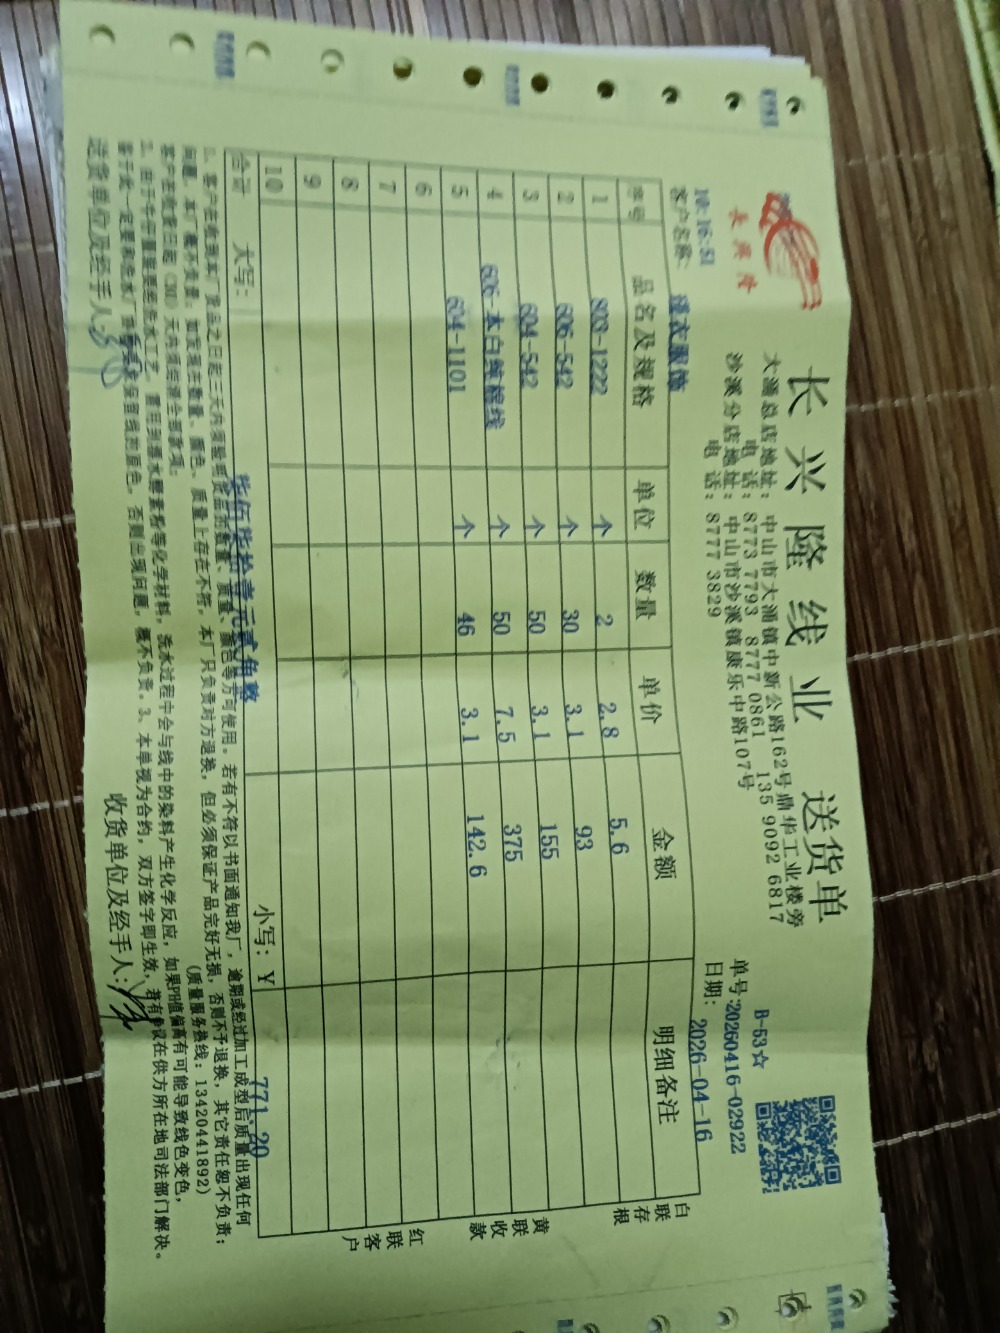 长兴隆线业 送货单
长兴隆
大涌总店地址：中山市大涌镇中新公路162号鼎华工业楼旁
电 话：8773 7793 8777 0861 135 9092 6817
沙溪分店地址：中山市沙溪镇康乐中路107号
电 话：8777 3829
B-53☆
单号:20260416-02922
日期： 2026-04-16
10:16:51
客户名称：
序号 品名及规格 单位 数量 单价 金额 明细备注
1 803-1222 个 2 2.8 5.6
2 606-542 个 30 3.1 93
3 604-542 个 50 3.1 155
4 606-本白纯棉线 个 50 7.5 375
5 604-1101 个 46 3.1 142.6
6
7
8
9
10
合计 大写： 柒佰柒拾壹元贰角整 小写：¥ 771.20
白联存根
黄联收款
红联客户
1、客户在收到本厂货品之日起三天内须验明货品的数量、质量、颜色等方可使用。若有不符以书面通知我厂，逾期或经过加工成型后质量出现任何
问题，本厂概不负责；如发现在数量、颜色、质量上存在不符，本厂只负责对方退换，但必须保证产品完好无损，否则不予退换，其它责任恕不负责；
客户在收货日起（30）天内须结清全部款项；
（质量服务热线：13420441892）
2、由于牛仔量要经些洗水工艺，需用到漂水酵素粉等化学材料，洗水过程中会与线中的染料产生化学反应，如果PH值偏高有可能导致线色变色，
否则出现问题，概不负责。3、本单视为合约，双方签字即生效，若有争议在供方所在地司法部门解决。
送货单位及经手人：
收货单位及经手人：